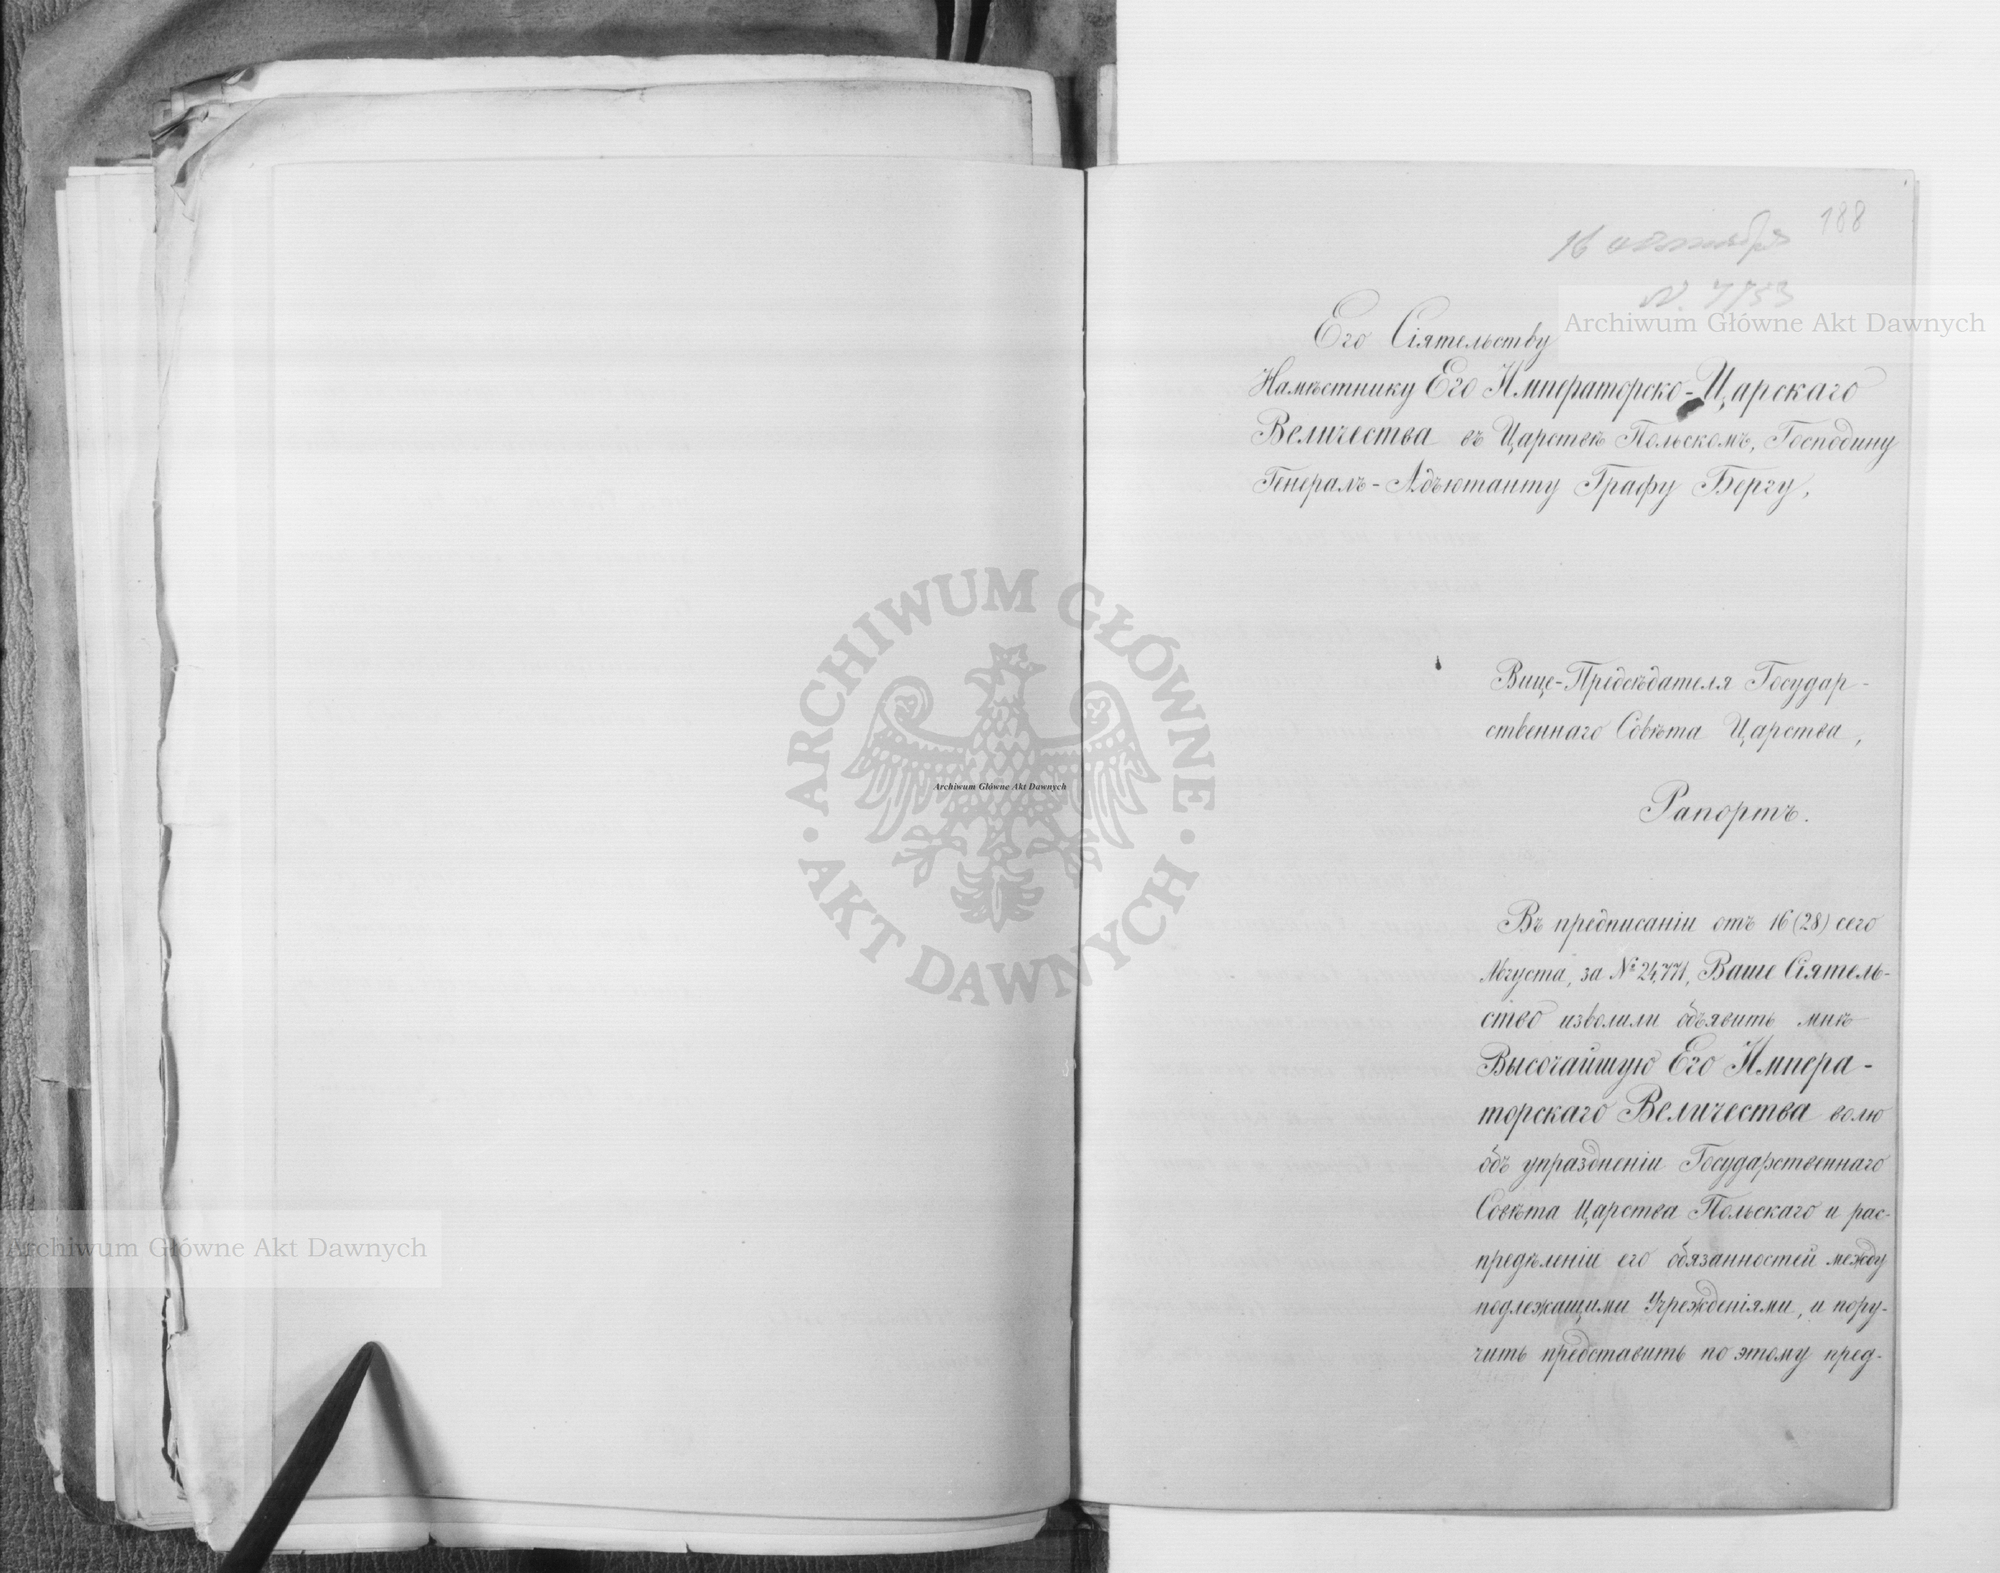 188
16 сентября
Archiwum Główne Akt Dawnych
Его Сіятельству
Намѣстнику Его Императорско-Царскаго
Величества въ Царствѣ Польскомъ, Господину
Генералъ-Адъютанту Графу Бергу,
ARCHIWUM GŁÓWNE
AKT DAWNYCH
Archiwum Główne Akt Dawnych
Вице-Предсѣдателя Государ-
ственнаго Совѣта Царства,
Рапортъ.
Въ предписаніи отъ 16 (28) сего
Августа, за № 24,771, Ваше Сіятель-
ство изволили объявить мнѣ
Высочайшую Его Импера-
торскаго Величества волю
объ упраздненіи Государственнаго
Совѣта Царства Польскаго и рас-
предѣленіи его обязанностей между
подлежащими Учрежденіями, и пору-
чить представить по этому пред-
Archiwum Główne Akt Dawnych